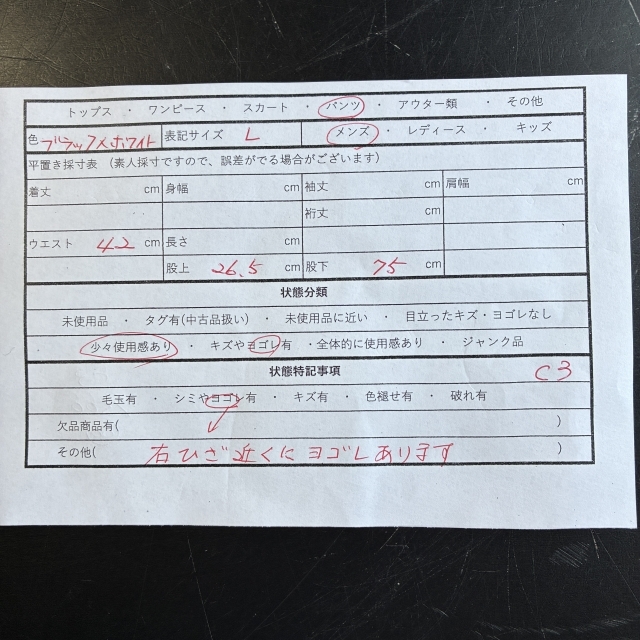 トップス ・ ワンピース ・ スカート ・ パンツ ・ アウター類 ・ その他
色 ブラック×ホワイト 表記サイズ L メンズ ・ レディース ・ キッズ
平置き採寸表 (素人採寸ですので、誤差がでる場合がございます)
着丈 cm 身幅 cm 袖丈 cm 肩幅 cm
裄丈 cm
ウエスト 42 cm 長さ cm
股上 26.5 cm 股下 75 cm
状態分類
未使用品 ・ タグ有(中古品扱い) ・ 未使用品に近い ・ 目立ったキズ・ヨゴレなし
・ 少々使用感あり ・ キズやヨゴレ有 ・全体的に使用感あり ・ ジャンク品
状態特記事項 C3
毛玉有 ・ シミやヨゴレ有 ・ キズ有 ・ 色褪せ有 ・ 破れ有
欠品商品有( )
その他( 右ひざ近くにヨゴレあります )